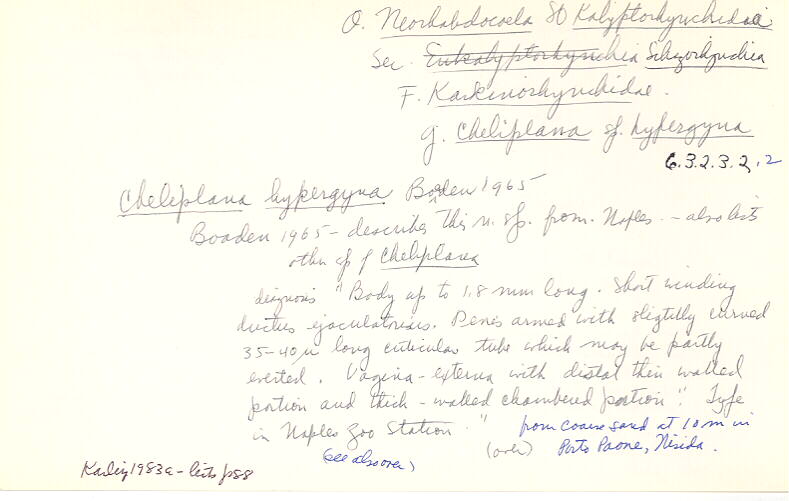 O. Neorhabdocoela SO Kalyptorhynchidai
Sec. Eukalyptorhynchia Schizorhynchia
F. Karkinorhynchidae.
g. Cheliplana sp. hypergyna
6.3.2.3.2.2
Cheliplana hypergyna Boaden 1965
Boaden 1965 - describes this n. sp. from Naples. - also lists
other sp of Cheliplana
diagnosis "Body up to 1.8 mm long. Short winding
ductus ejaculatorius. Penis armed with slightly curved
35-40 µ long cuticular tube which may be partly
everted. Vagina-externa with distal thin walled
portion and thick-walled chambered portion". Type
in Naples Zoo Station." from coarse sand at 10 m in
(see also over) (over) Porto Paone, Nisida.
Karling 1983a - lists p58